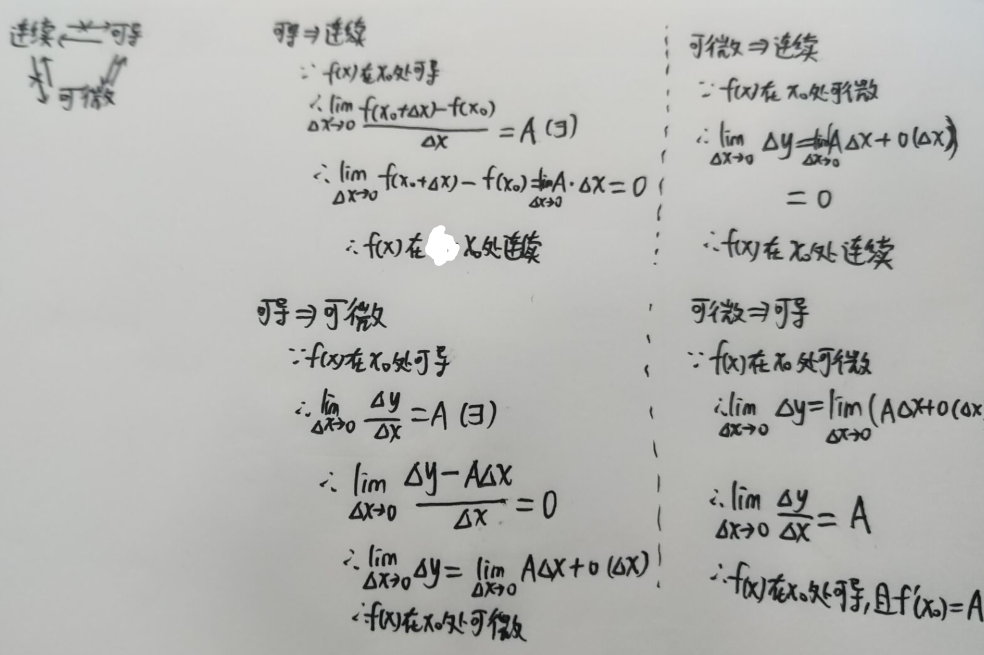 连续 ⇄ 可导
可微
可导⇒连续
∵ f(x)在x₀处可导
∴ lim Δx→0 (f(x₀+Δx)-f(x₀))/Δx = A (∃)
∴ lim Δx→0 f(x₀+Δx) - f(x₀) = lim Δx→0 A·Δx = 0
∴ f(x)在 x₀处连续
可微⇒连续
∵ f(x)在x₀处可微
∴ lim Δx→0 Δy = lim Δx→0 AΔx + o(Δx))
= 0
∴ f(x)在x₀处连续
可导⇒可微
∵ f(x)在x₀处可导
∴ lim Δx→0 Δy/Δx = A (∃)
∴ lim Δx→0 (Δy-AΔx)/Δx = 0
∴ lim Δx→0 Δy = lim Δx→0 AΔx + o(Δx)
∴ f(x)在x₀处可微
可微⇒可导
∵ f(x)在x₀处可微
∴ lim Δx→0 Δy = lim Δx→0 (AΔx+o(Δx
∴ lim Δx→0 Δy/Δx = A
∴ f(x)在x₀处可导,且f'(x₀)=A